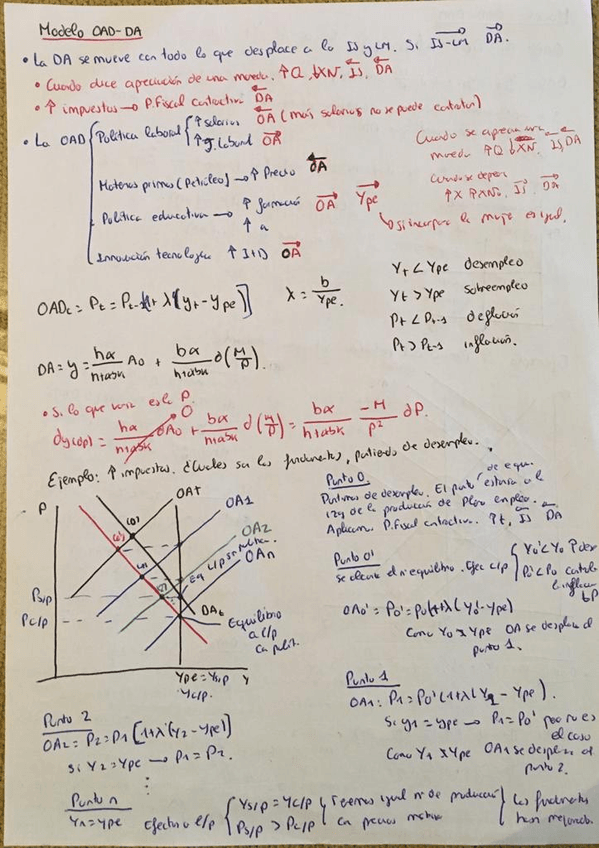 Modelo OAD-DA
• La DA se mueve con todo lo que desplace a la IS y LM. Si IS-LM DA.
• Cuando dice apreciación de una moneda. ↑Q, ↓XN, IS, DA
• ↑ impuestos → P.fiscal contractiva DA
• La OAD
Política laboral
↑ salarios OA (más salarios, no se puede contratar)
↑ J. laboral OA
Materias primas (Petróleo) → ↑ Precio OA
Política educativa → ↑ formación OA Ype
↑ a
Innovación tecnológica ↑ I+D OA
Cuando se aprecia una
moneda ↑Q ↓XN, IS, DA
Cuando se deprec
↑X ↑XN, IS DA
Si incorpora la mujer es igual.
OADt = Pt = Pt-1[1+ λ(yt - ype)]
λ = b / Ype.
Yt < Ype desempleo
Yt > Ype sobreempleo
Pt < Pt-1 deflación
Pt > Pt-1 inflación.
DA = y = hα / h+αbk A0 + bα / h+αbk d(M/P).
• Si lo que varía es la P.
dy(dp) = hα / h+αbk dA0 + bα / h+αbk d(M/P) = bα / h+αbk -M / P² dP.
0
Ejemplo: ↑ impuestos. ¿Cuáles son los fundamentos, partiendo de desempleo.
P
OA1
OA2
OAn
(0)
(0')
(1)
(2)
DA0
Ps/p
Pc/p
Eq L/P sin política
Equilibrio
a L/p
con polít.
Ype = Ys/p
Yc/p.
y
Punto 0
Partimos de desempleo. El punto de equi. estaría a la
izq de la producción de pleno empleo.
Aplican P.fiscal contractiva. ↑t, IS DA
Punto 0'
se alcanza el nº equilibrio. Efec c/p
Y0' < Y0 ↑ des
P0' < P0 controla
la inflación
OA0' = P0' = P0(1+λ(Y0' - Ype)
Como Y0' < Ype OA se desplaza al
punto 1.
Punto 1
OA1: P1 = P0'(1+λ(Y1 - Ype).
Si y1 = ype → P1 = P0' pero no es
el caso
Como Y1 < Ype OA1 se desplaza al
punto 2.
Punto 2
OA2 = P2 = P1 [1+λ(Y2 - Ype)]
Si Y2 = Ype → P1 = P2.
Punto n
Yn = Ype
Efectos a l/p
Ys/p = Yc/p
Ps/p > Pc/p
Tenemos igual nº de producción
con precios
Los fundamentos
han mejorado.